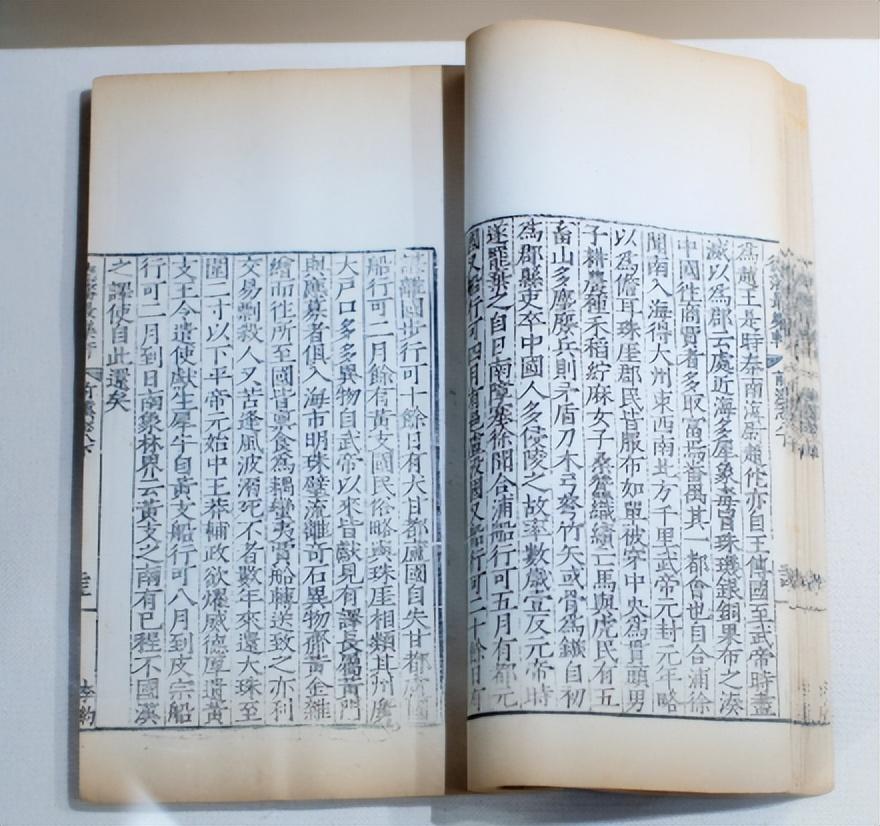 為越王是時秦南海尉趙佗亦自王傳國至武帝時盡
滅以為郡云處近海多犀象毒冒珠璣銀銅果布之湊
中國往商賈者多取富焉番禺其一都會也自合浦徐
聞南入海得大州東西南北方千里武帝元封元年略
以為儋耳珠厓郡民皆服布如單被穿中央為貫頭男
子耕農種禾稻紵麻女子桑蠶織績亡馬與虎民有五
畜山多麈麖兵則矛盾刀木弓弩竹矢或骨為鏃自初
為郡縣吏卒中國人多侵陵之故率數歲壹反元帝時
遂罷棄之自日南障塞徐聞合浦船行可五月有都元
國又船行可四月有邑盧沒國又船行可二十餘日有
諶離國步行可十餘日有夫甘都盧國自夫甘都盧國
船行可二月餘有黃支國民俗略與珠厓相類其州廣
大戶口多多異物自武帝以來皆獻見有譯長屬黃門
與應募者俱入海市明珠璧流離奇石異物齎黃金雜
繒而往所至國皆稟食為耦蠻夷賈船轉送致之亦利
交易剽殺人又苦逢風波溺死不者數年來還大珠至
圍二寸以下平帝元始中王莽輔政欲燿威德厚遺黃
支王令遣使獻生犀牛自黃支船行可八月到皮宗船
行可二月到日南象林界云黃支之南有已程不國漢
之譯使自此還矣